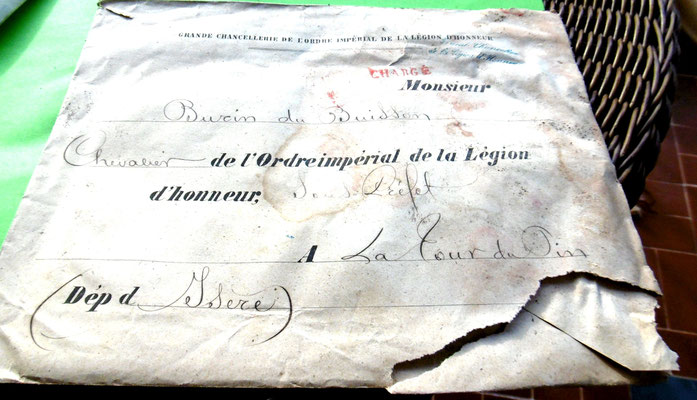 GRANDE CHANCELLERIE DE L'ORDRE IMPÉRIAL DE LA LÉGION D'HONNEUR
CHARGÉ
Monsieur
Burin du Buisson
Chevalier de l'Ordre impérial de la Légion
d'honneur, Sous Préfet
A La Tour du Pin
(Dép d Isère)